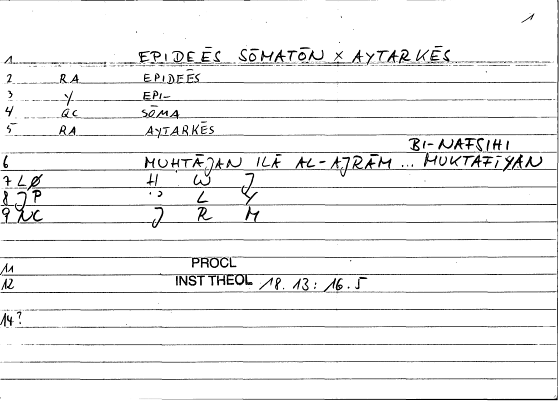 1
1 EPIDEĒS SŌMATŌN × AYTARKĒS
2 RA EPIDEĒS
3 Y EPI-
4 QC SŌMA
5 RA AYTARKĒS
BI-NAFSIHI
6 MUHTĀJAN ILĀ AL-AJRĀM ... MUKTAFIYAN
7 LØ H W J
8 JP L Y
9 NC J R M
11 PROCL
12 INST THEOL 18.13: 16.5
14?